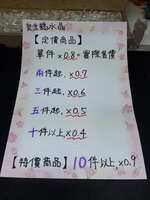 水晶
【定價商品】
單件 x0.8=實際售價
兩件起. x0.7
三件起. x0.6
五件起. x0.5
十件以上 x0.4
【特價商品】10件以上 x0.9